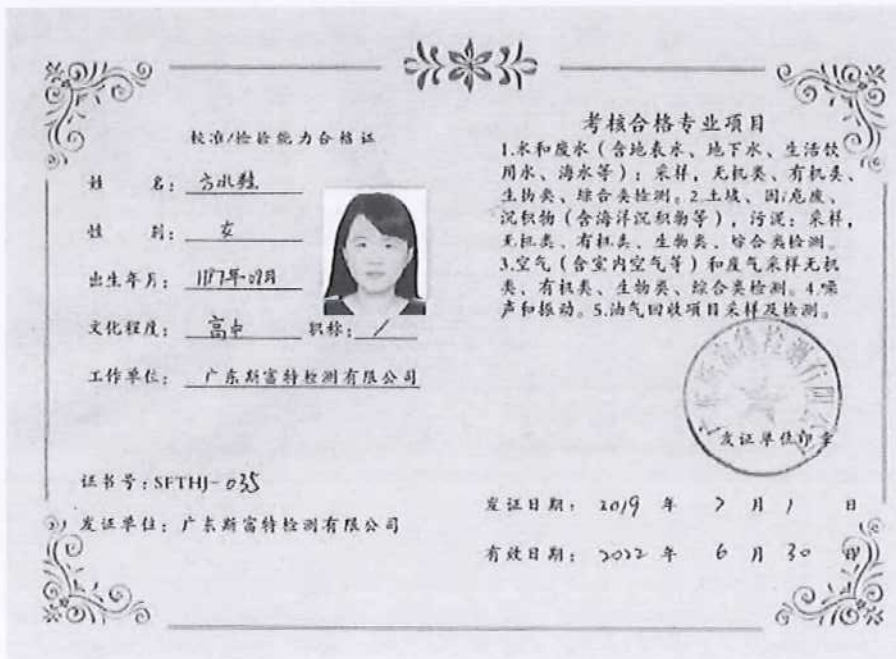 校准/检验能力合格证
姓 名：方水
性 别：女
出生年月：1987年09月
文化程度：高中 职称：/
工作单位：广东斯富特检测有限公司
证书号：SFTHJ-035
发证单位：广东斯富特检测有限公司
考核合格专业项目
1.水和废水（含地表水、地下水、生活饮
用水、海水等）：采样，无机类、有机类、
生物类、综合类检测。2.土壤、固/危废、
沉积物（含海洋沉积物等），污泥：采样，
无机类、有机类、生物类、综合类检测。
3.空气（含室内空气等）和废气采样无机
类、有机类、生物类、综合类检测。4.噪
声和振动。5.油气回收项目采样及检测。
广东斯富特检测有限公司
发证单位印章
发证日期：2019 年 7 月 1 日
有效日期：2022 年 6 月 30 日